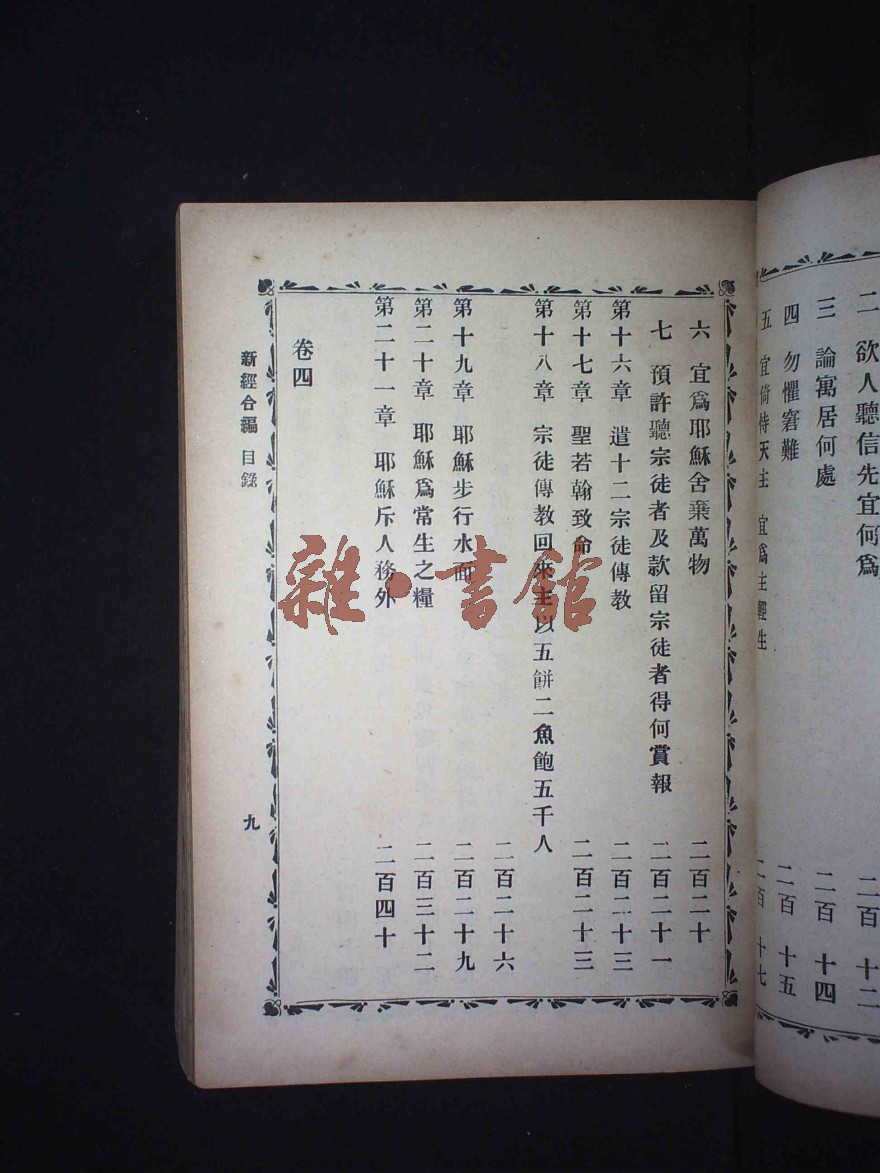 二 欲人聽信先宜何爲 二百十二
三 論寓居何處 二百十四
四 勿懼窘難 二百十五
五 宜倚恃天主 宜爲主輕生 二百十七
六 宜爲耶穌舍棄萬物 二百二十
七 預許聽宗徒者及款留宗徒者得何賞報 二百二十一
第十六章 遣十二宗徒傳教 二百二十三
第十七章 聖若翰致命 二百二十三
第十八章 宗徒傳教回來主以五餅二魚飽五千人
二百二十六
第十九章 耶穌步行水面 二百二十九
第二十章 耶穌爲常生之糧 二百三十二
第二十一章 耶穌斥人務外 二百四十
卷四
新經合編 目錄 九
雜·書館